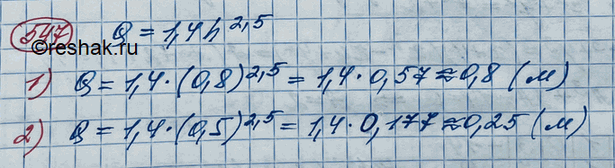 547 Q = 1,4h^2,5
©reshak.ru
1) Q = 1,4·(0,8)^2,5 = 1,4·0,57≈0,8 (м)
2) Q = 1,4·(0,5)^2,5 = 1,4·0,177≈0,25 (м)